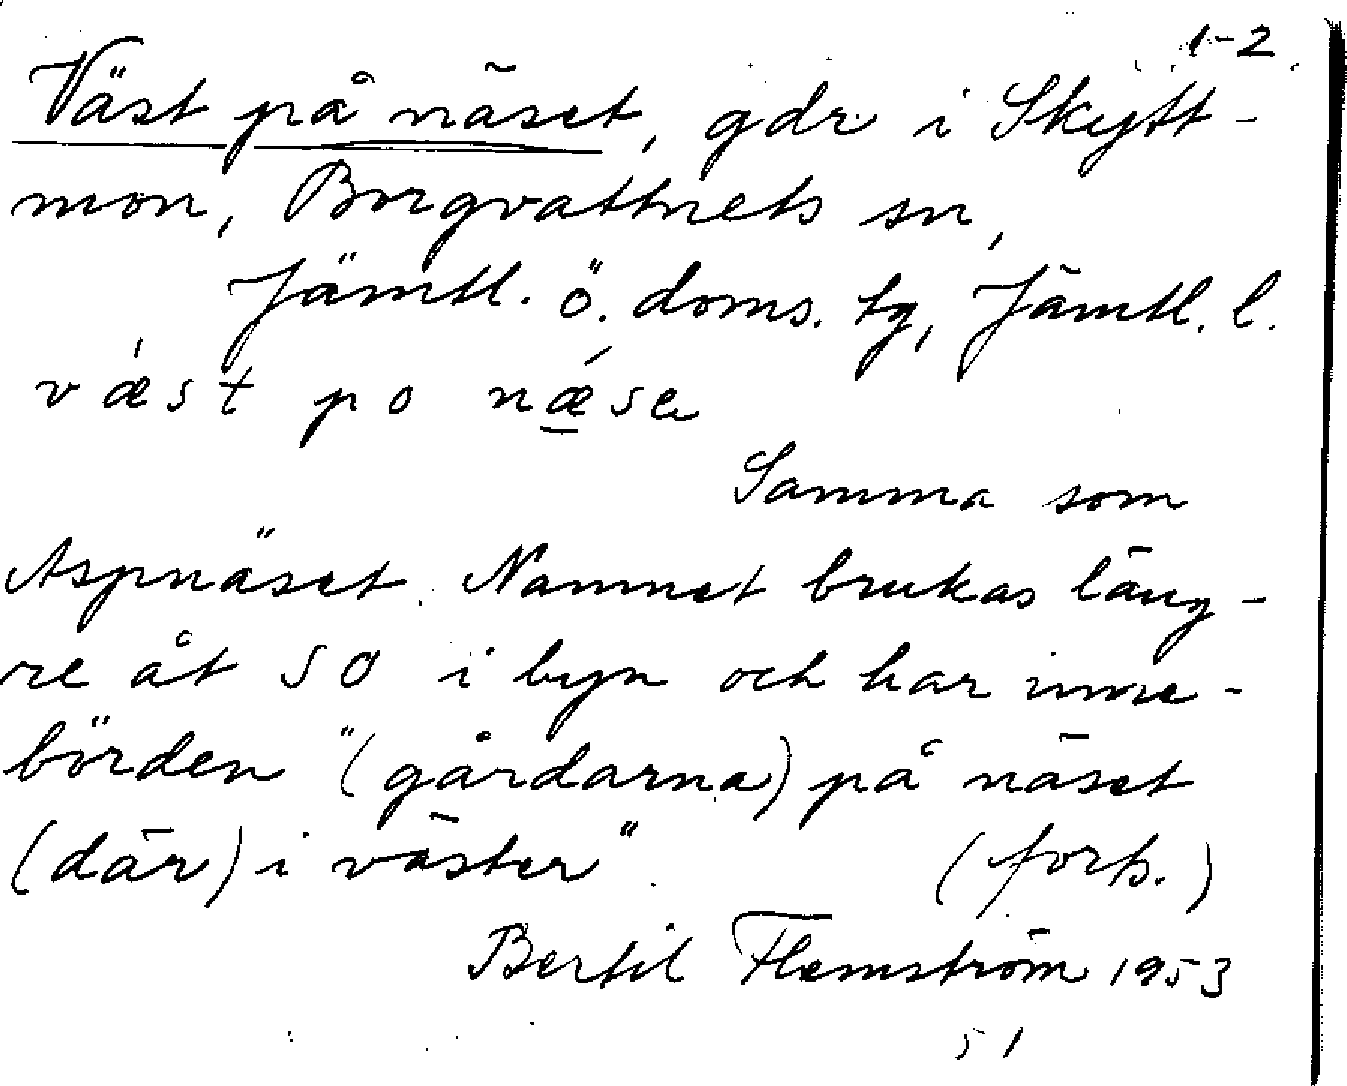 1-2.
Väst på näset, gdr i Skytt-
mon, Borgvattnets sn,
Jämtl. ö. doms. tg, Jämtl. l.
vǽst po nǽ̱se
Samma som
Aspnäset. Namnet brukas läng-
re åt SO i byn och har inne-
börden "(gårdarna) på näset
(där) i väster".
(forts.)
Bertil Flemström 1953
51